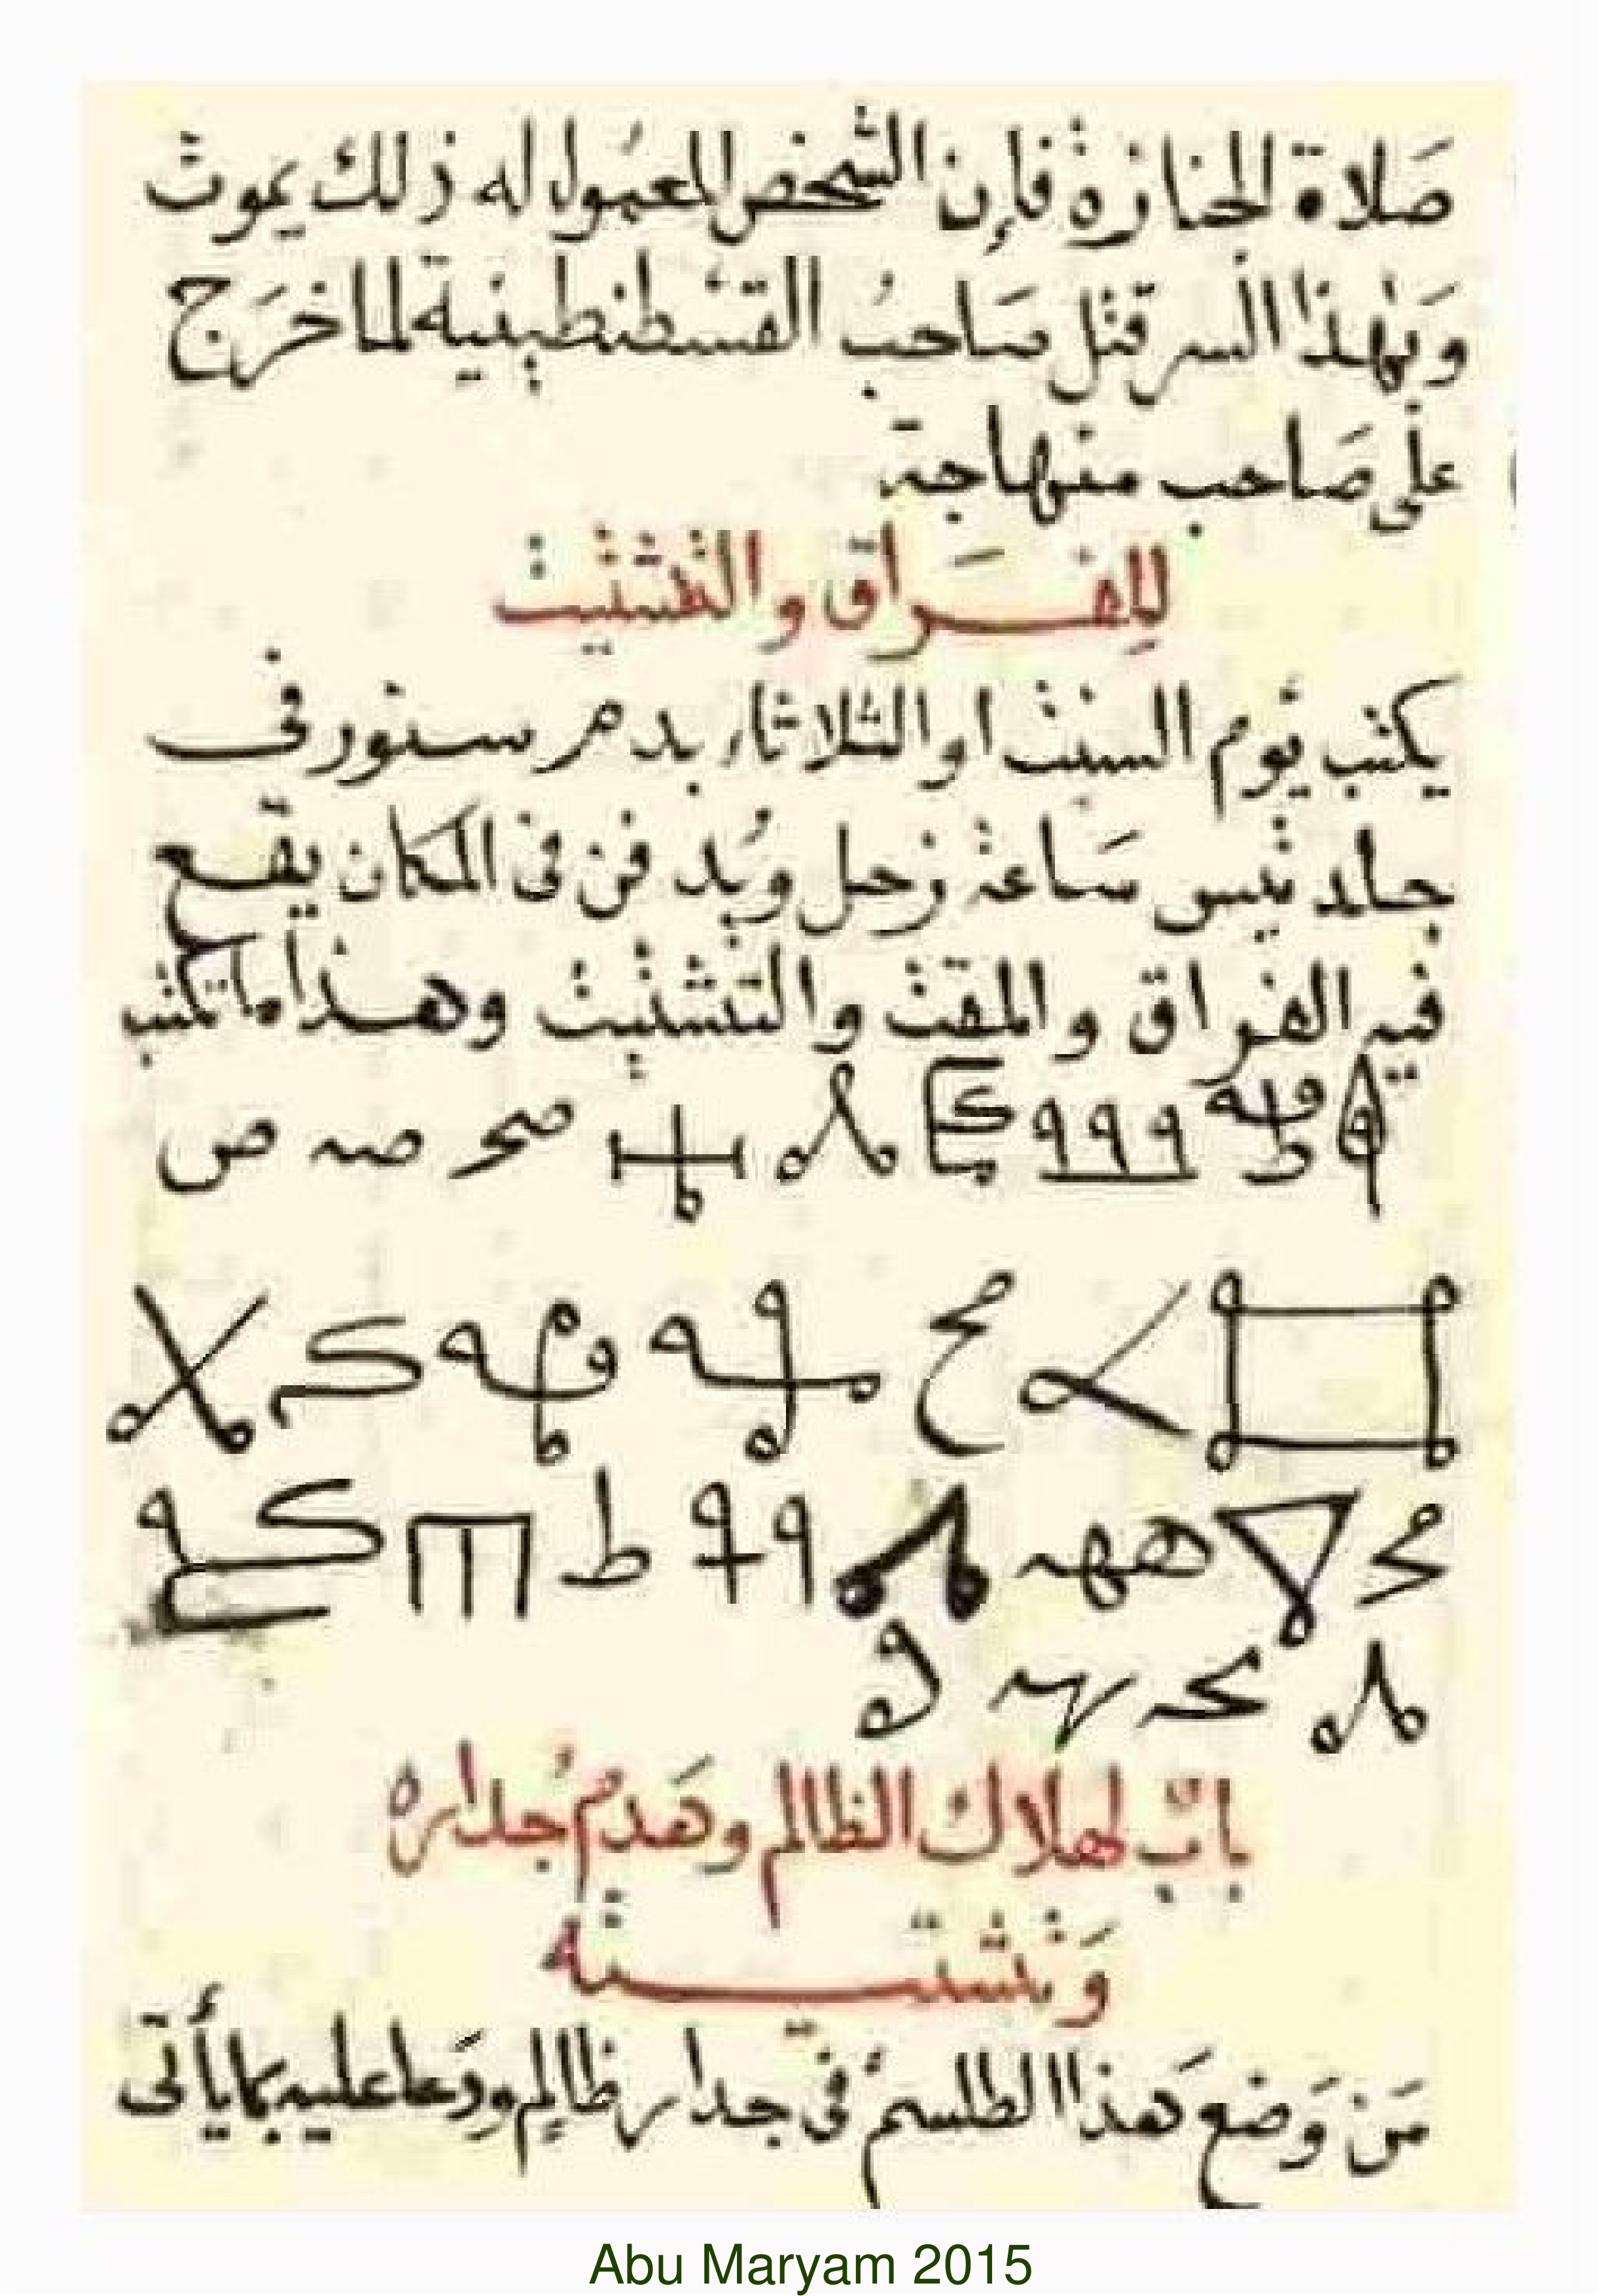 صَلاة الجنازة فإن الشخص المعمول له ذلك يموت
وَبهذا السر قتل صَاحبُ القسطنطينية لما خرَج
على صَاحب منهاجة
لِلفـــراق والتشتيت
يكتب يوم السبت او الثلاثاء بدم سنور فى
جلد تيس سَاعة زحل ويُدفن فى المكان يقـع
فيه الفراق والمقت والتشتيت وهـذا ما تكتب
صحر صه ص
ط
بابٌ لهلاك الظالم وهَدم جُداره
وَتشتيـــته
مَن وَضع هَذا الطلسم فى جدار ظالِم ودَعا عليه بما يأتى
Abu Maryam 2015